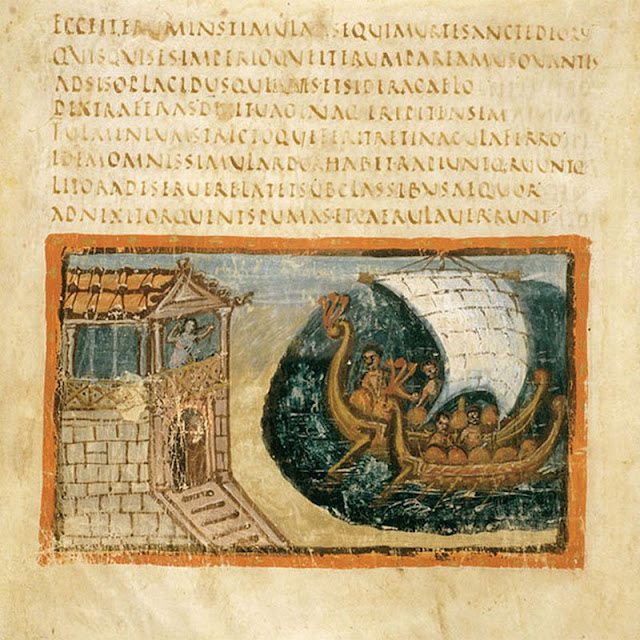 ECCEITERUMINSTIMULATSEQUIMURTESANCTEDEORU
QUISQUISESIMPERIOQUEITERUMPAREAMUSOVANTES
ADSISOPLACIDUSQUEIUVESETSIDERACAELO
DEXTRAFERASDIXITVAGINAQERIPITENSEM
FULMINEUMSTRICTOQUEFERITRETINACULAFERRO
IDEMOMNISSIMULARDORHABETRAPIUNTQRUUNTQ
LITORADESERUERELATETSUBCLASSIBUSAEQUOR
ADNIXITORQUENTSPUMASETCAERULAVERRUNT